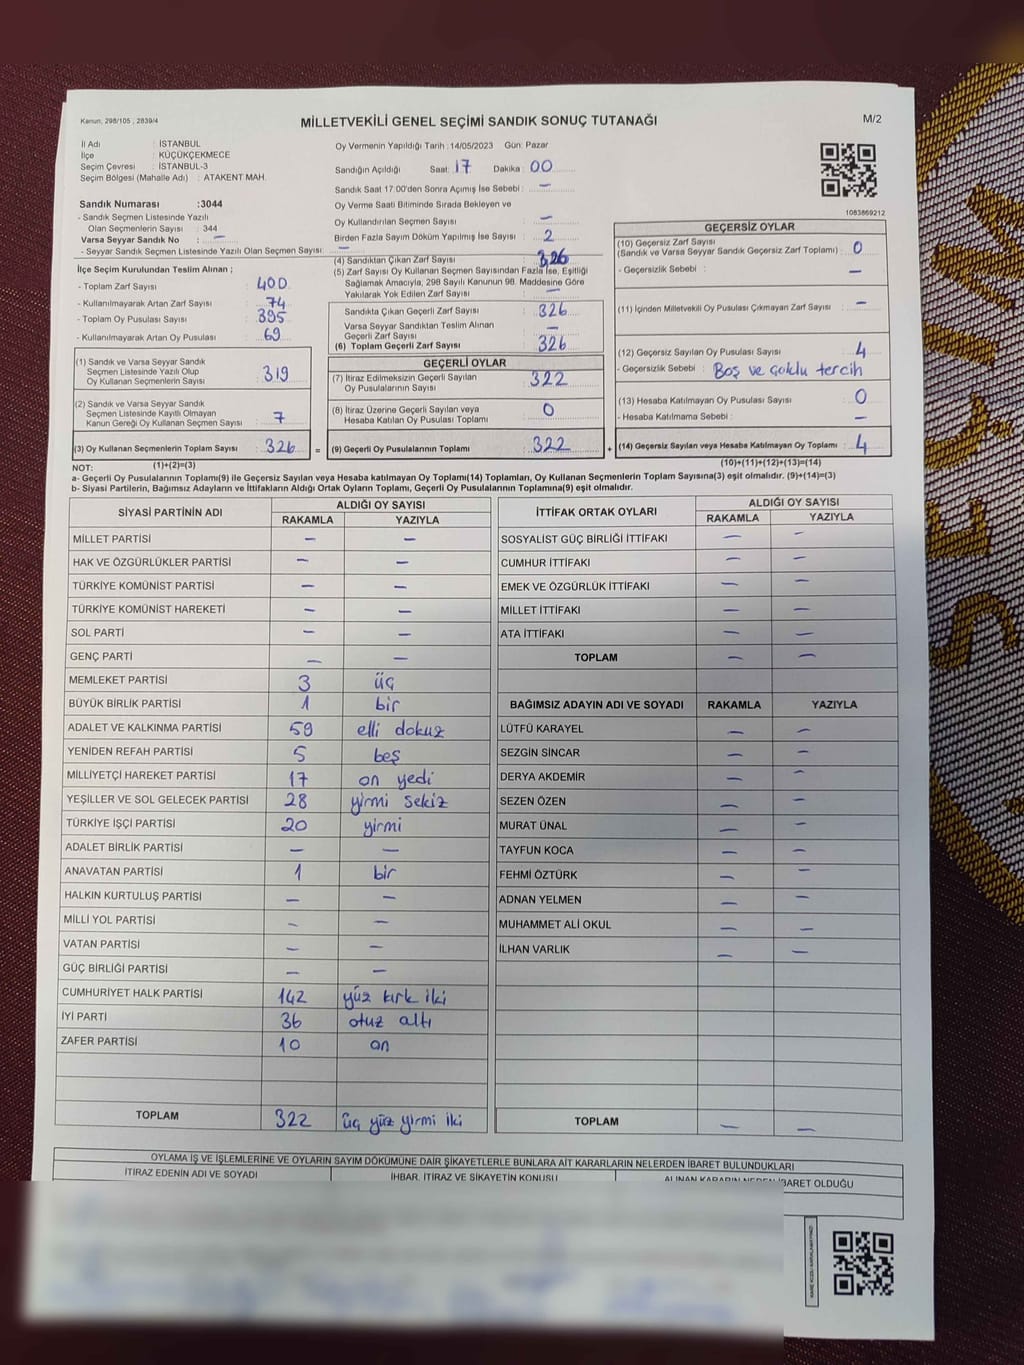 Kanun, 298/105 , 2839/4
MİLLETVEKİLİ GENEL SEÇİMİ SANDIK SONUÇ TUTANAĞI
M/2
İl Adı : İSTANBUL
İlçe : KÜÇÜKÇEKMECE
Seçim Çevresi : İSTANBUL-3
Seçim Bölgesi (Mahalle Adı) : ATAKENT MAH.
Sandık Numarası :3044
- Sandık Seçmen Listesinde Yazılı
Olan Seçmenlerin Sayısı : 344
Varsa Seyyar Sandık No : –
- Seyyar Sandık Seçmen Listesinde Yazılı Olan Seçmen Sayısı : –
İlçe Seçim Kurulundan Teslim Alınan ;
- Toplam Zarf Sayısı : 400
- Kullanılmayarak Artan Zarf Sayısı : 74
- Toplam Oy Pusulası Sayısı : 395
- Kullanılmayarak Artan Oy Pusulası : 69
(1) Sandık ve Varsa Seyyar Sandık
Seçmen Listesinde Yazılı Olup
Oy Kullanan Seçmenlerin Sayısı : 319
(2) Sandık ve Varsa Seyyar Sandık
Seçmen Listesinde Kayıtlı Olmayan
Kanun Gereği Oy Kullanan Seçmen Sayısı : 7
(3) Oy Kullanan Seçmenlerin Toplam Sayısı : 326 =
Oy Vermenin Yapıldığı Tarih : 14/05/2023 Gün: Pazar
Sandığın Açıldığı Saat: 17 Dakika : 00
Sandık Saat 17:00'den Sonra Açımış İse Sebebi : –
Oy Verme Saati Bitiminde Sırada Bekleyen ve
Oy Kullandırılan Seçmen Sayısı : –
Birden Fazla Sayım Döküm Yapılmış İse Sayısı : 2
(4) Sandıktan Çıkan Zarf Sayısı : 326
(5) Zarf Sayısı Oy Kullanan Seçmen Sayısından Fazla İse, Eşitliği
Sağlamak Amacıyla, 298 Sayılı Kanunun 98. Maddesine Göre
Yakılarak Yok Edilen Zarf Sayısı : –
Sandıkta Çıkan Geçerli Zarf Sayısı : 326
Varsa Seyyar Sandıktan Teslim Alınan
Geçerli Zarf Sayısı : –
(6) Toplam Geçerli Zarf Sayısı : 326
GEÇERLİ OYLAR
(7) İtiraz Edilmeksizin Geçerli Sayılan
Oy Pusulalarının Sayısı : 322
(8) İtiraz Üzerine Geçerli Sayılan veya
Hesaba Katılan Oy Pusulası Toplamı : 0
(9) Geçerli Oy Pusulalarının Toplamı : 322 +
1083869212
GEÇERSİZ OYLAR
(10) Geçersiz Zarf Sayısı
(Sandık ve Varsa Seyyar Sandık Geçersiz Zarf Toplamı) : 0
- Geçersizlik Sebebi : –
(11) İçinden Milletvekili Oy Pusulası Çıkmayan Zarf Sayısı : –
(12) Geçersiz Sayılan Oy Pusulası Sayısı : 4
- Geçersizlik Sebebi : Boş ve çoklu tercih
(13) Hesaba Katılmayan Oy Pusulası Sayısı : 0
- Hesaba Katılmama Sebebi : –
(14) Geçersiz Sayılan veya Hesaba Katılmayan Oy Toplamı : 4
NOT: (1)+(2)=(3) (10)+(11)+(12)+(13)=(14)
a- Geçerli Oy Pusulasının Toplamı(9) ile Geçersiz Sayılan veya Hesaba katılmayan Oy Toplamı(14) Toplamları, Oy Kullanan Seçmenlerin Toplam Sayısına(3) eşit olmalıdır. (9)+(14)=(3)
b- Siyasi Partilerin, Bağımsız Adayların ve İttifakların Aldığı Ortak Oyların Toplamı, Geçerli Oy Pusulasının Toplamına(9) eşit olmalıdır.
SİYASİ PARTİNİN ADI ALDIĞI OY SAYISI
RAKAMLA YAZIYLA
MİLLET PARTİSİ – –
HAK VE ÖZGÜRLÜKLER PARTİSİ – –
TÜRKİYE KOMÜNİST PARTİSİ – –
TÜRKİYE KOMÜNİST HAREKETİ – –
SOL PARTİ – –
GENÇ PARTİ – –
MEMLEKET PARTİSİ 3 üç
BÜYÜK BİRLİK PARTİSİ 1 bir
ADALET VE KALKINMA PARTİSİ 59 elli dokuz
YENİDEN REFAH PARTİSİ 5 beş
MİLLİYETÇİ HAREKET PARTİSİ 17 on yedi
YEŞİLLER VE SOL GELECEK PARTİSİ 28 yirmi sekiz
TÜRKİYE İŞÇİ PARTİSİ 20 yirmi
ADALET BİRLİK PARTİSİ – –
ANAVATAN PARTİSİ 1 bir
HALKIN KURTULUŞ PARTİSİ – –
MİLLİ YOL PARTİSİ – –
VATAN PARTİSİ – –
GÜÇ BİRLİĞİ PARTİSİ – –
CUMHURİYET HALK PARTİSİ 142 yüz kırk iki
İYİ PARTİ 36 otuz altı
ZAFER PARTİSİ 10 on
TOPLAM 322 üç yüz yirmi iki
İTTİFAK ORTAK OYLARI ALDIĞI OY SAYISI
RAKAMLA YAZIYLA
SOSYALİST GÜÇ BİRLİĞİ İTTİFAKI – –
CUMHUR İTTİFAKI – –
EMEK VE ÖZGÜRLÜK İTTİFAKI – –
MİLLET İTTİFAKI – –
ATA İTTİFAKI – –
TOPLAM – –
BAĞIMSIZ ADAYIN ADI VE SOYADI RAKAMLA YAZIYLA
LÜTFÜ KARAYEL – –
SEZGİN SİNCAR – –
DERYA AKDEMİR – –
SEZEN ÖZEN – –
MURAT ÜNAL – –
TAYFUN KOCA – –
FEHMİ ÖZTÜRK – –
ADNAN YELMEN – –
MUHAMMET ALİ OKUL – –
İLHAN VARLIK – –
TOPLAM – –
OYLAMA İŞ VE İŞLEMLERİNE VE OYLARIN SAYIM DÖKÜMÜNE DAİR ŞİKAYETLERLE BUNLARA AİT KARARLARIN NELERDEN İBARET BULUNDUKLARI
İTİRAZ EDENİN ADI VE SOYADI İHBAR, İTİRAZ VE ŞİKAYETİN KONUSU ALINAN KARARIN NEDEN İBARET OLDUĞU